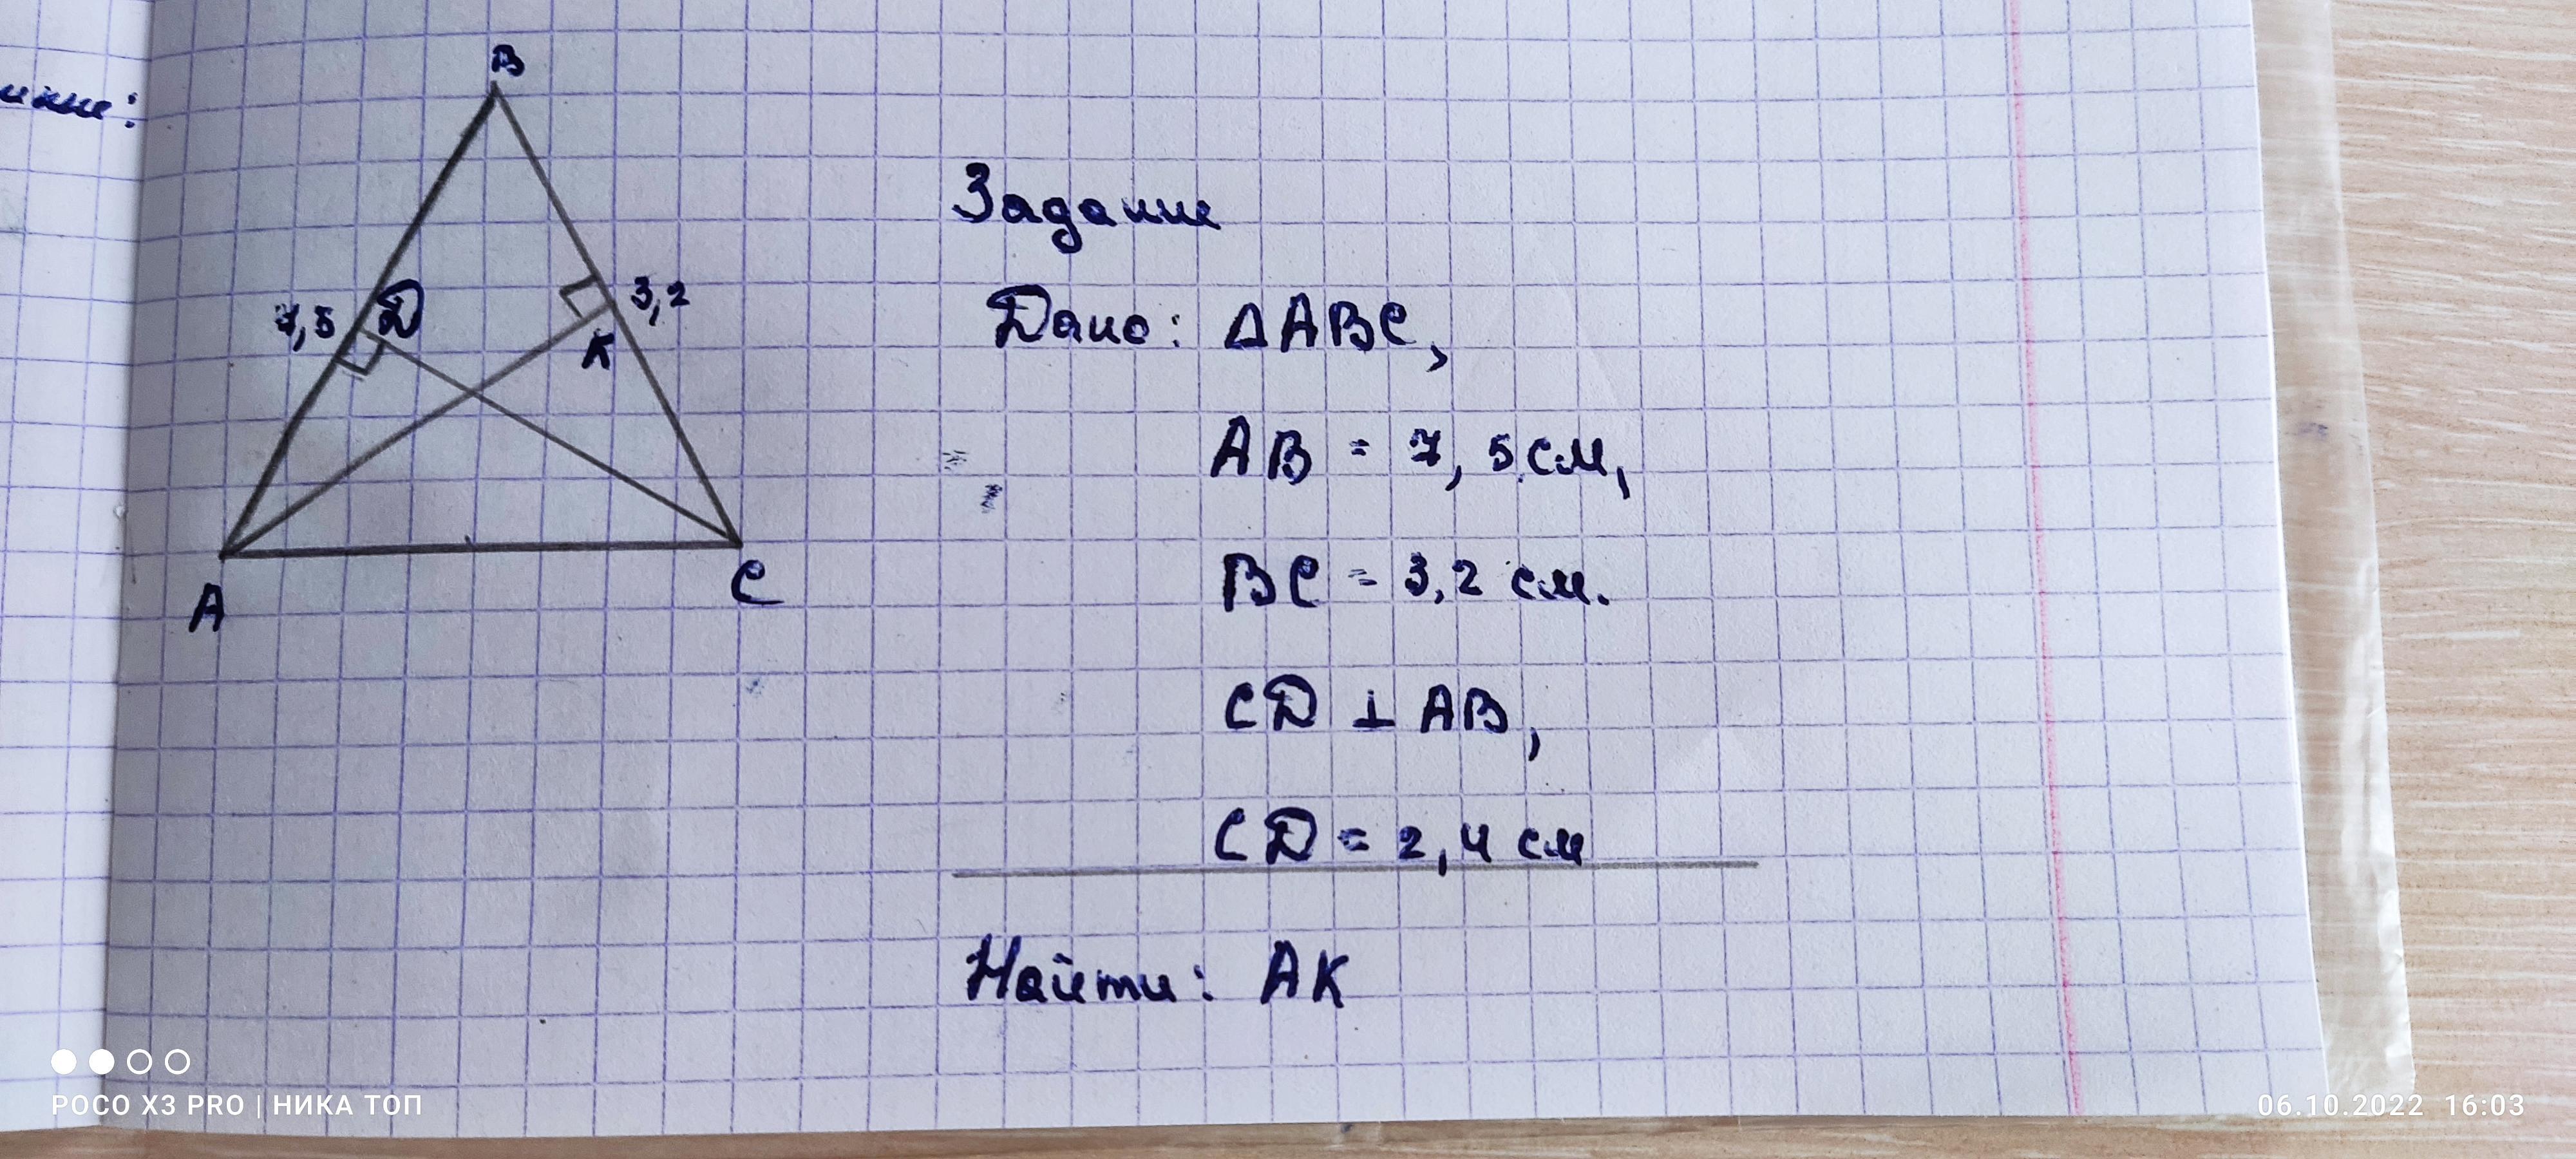 В
7,5
D
3,2
К
А
С
Задание
Дано: ΔАВС,
АВ = 7,5 см,
ВС = 3,2 см.
CD ⊥ АВ,
CD = 2,4 см
Найти: АК
POCO X3 PRO | НИКА ТОП
06.10.2022 16:03